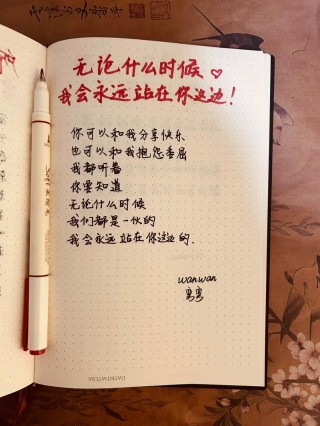 无论什么时候♡
我会永远站在你这边！
你可以和我分享快乐
也可以和我抱怨委屈
我都听着
你要知道
无论什么时候
我们都是一伙的
我会永远站在你这边的.
wanwan